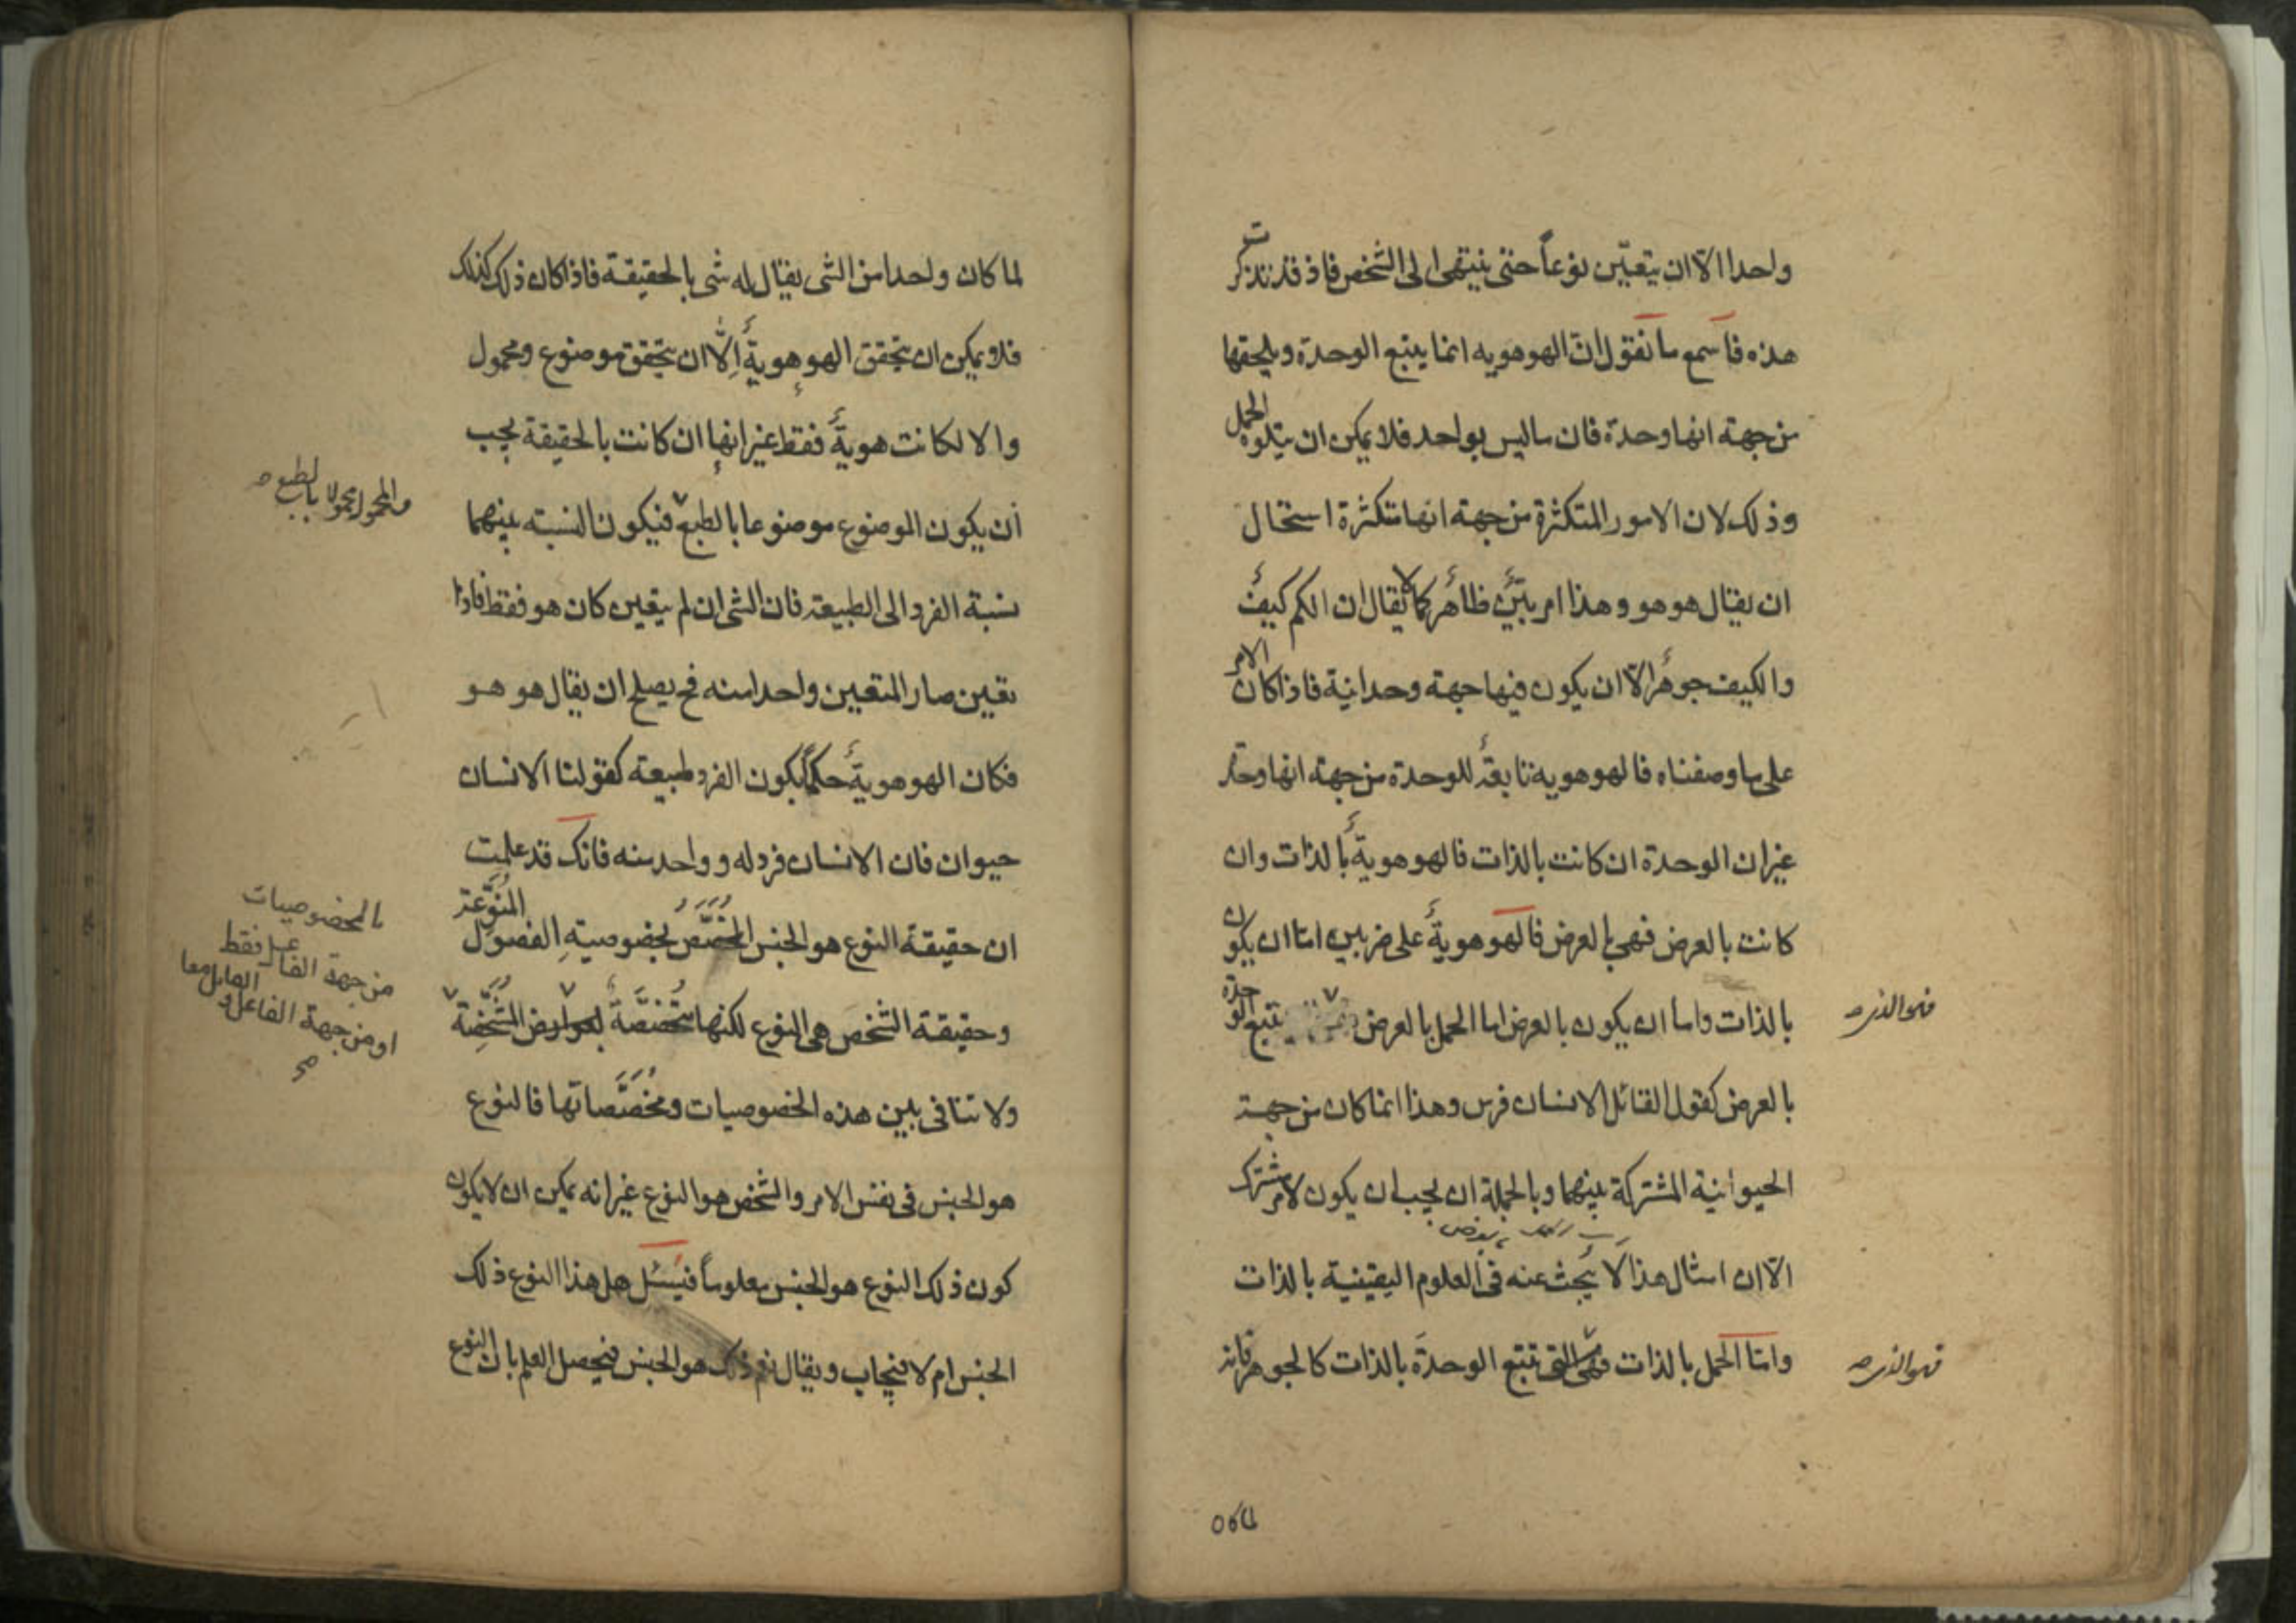 واحدا الّا ان يتعيّن نوعاً حتى ينتهى الى الشخص فاذ قد تذكرت
هذه فاسمع ما نقول انّ الهوهويه انما يتبع الوحدة ويلحقها
من جهة انها وحدة فان ما ليس بواحد فلا يمكن ان يتلوه الحمل
وذلك لان الامور المتكثرة من جهة انها متكثرة استحال
ان يقال هو هو وهذا امر بيّن ظاهر كما لا يقال ان الكم كيف
والكيف جوهر الّا ان يكون فيها جهة وحدانية فاذا كان الامر
على ما وصفناه فالهوهويه تابعة للوحدة من جهة انها وحدة
غير ان الوحدة ان كانت بالذات فالهوهوية بالذات وان
كانت بالعرض فهى بالعرض فالهوهوية على ضربين امّا ان يكون
بالذات واما ان يكون بالعرض اما الحمل بالعرض يتبع الوحدة
فهو الذى صح
بالعرض كقول القائل الانسان فرس وهذا انما كان من جهة
الحيوانية المشتركة بينهما وبالجملة ان يجب ان يكون لامر مشترك
الّا ان امثال هذا لا يُبحث عنه فى العلوم اليقينية بالذات
وامّا الحمل بالذات فهى التى تتبع الوحدة بالذات كالجوهر فانه
فهو الذى صح
لما كان
لما كان واحدا من الشى يقال له شى بالحقيقة فاذا كان ذلك كذلك
فلا يمكن ان يتحقق الهوهوية إلّا ان يتحقق موضوع ومحمول
والا لكانت هوية فقط غير انها ان كانت بالحقيقة يجب
أن يكون الموضوع موضوعا بالطبع فيكون النسبه بينهما
والمحمول محمولا بالطبع صح
نسبة الفرد الى الطبيعة فان الشى ان لم يتعين كان هو فقط فاذا
تعين صار المتعين واحدا منه فح يصلح ان يقال هو هو
فكان الهوهوية حكماً بكون الفرد طبيعة كقولنا الانسان
حيوان فان الانسان فرد له وواحد منه فانك قد علمت
ان حقيقة النوع هو الجنس المخصّص بخصوصيةِ الفصول المنوّعة
وحقيقة الشخص هى النوع لكنها متخصّصة بعوارض المشخّصة
بالخصوصيات
من جهة القابل فقط
او من جهة الفاعل والقابل معا
صح
ولا تنافى بين هذه الخصوصيات ومخصّصاتها فالنوع
هو الجنس فى نفس الامر والشخص هو النوع غير انه يمكن ان لا يكون
كون ذلك النوع هو الجنس معلوماً فيسئل هل هذا النوع ذلك
الجنس ام لا فيجاب ويقال نعم ذلك هو الجنس فيحصل العلم بان النوع